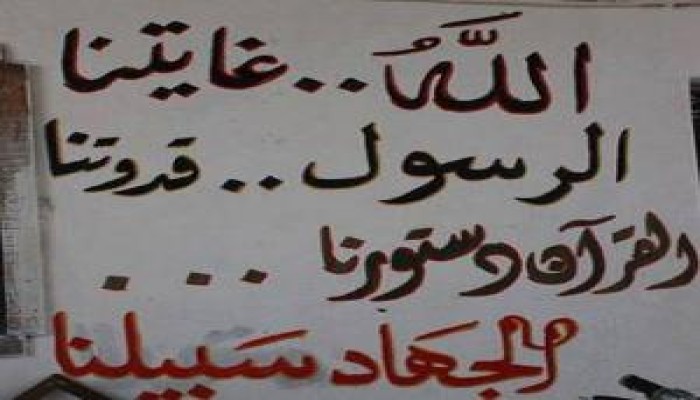 اللَّهُ .. غايتنا
الرسول .. قدوتنا
القرآن دستورنا
. . .
الجهاد سَبيلنا